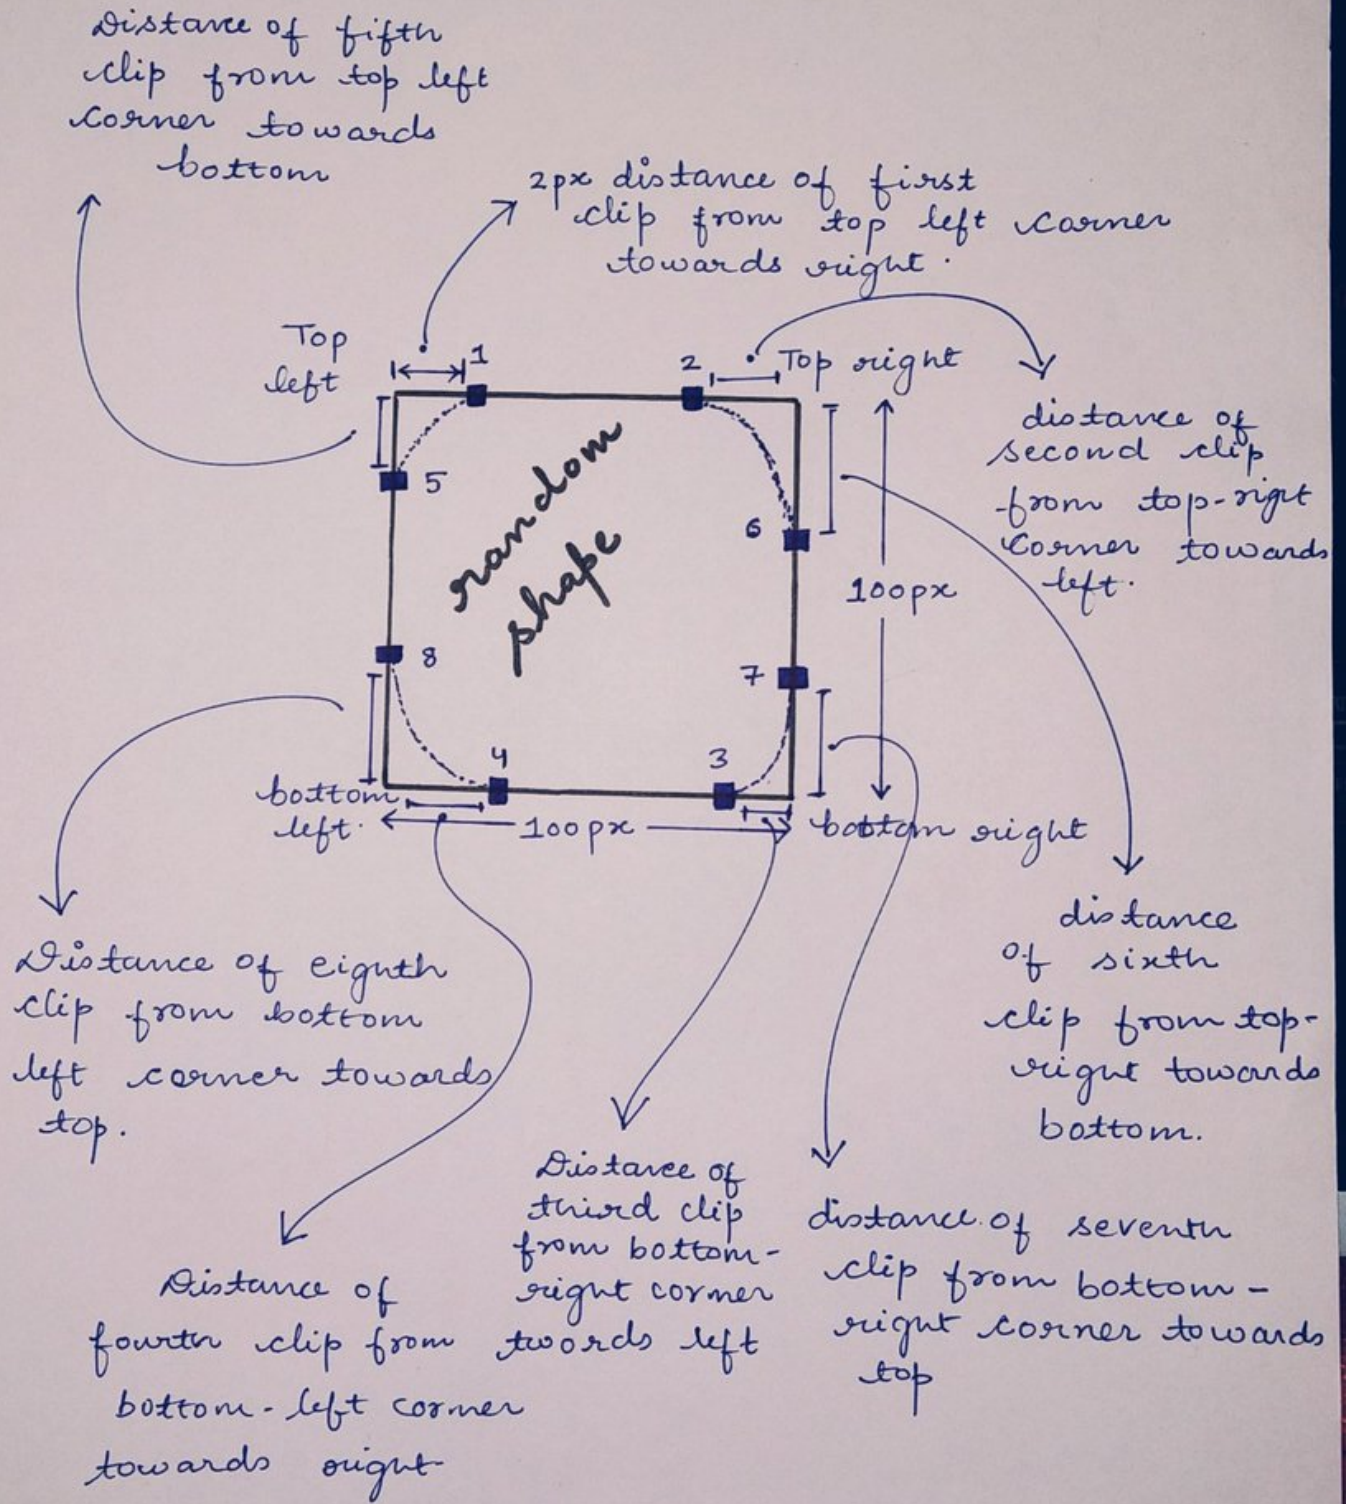 Distance of fifth
clip from top left
corner towards
bottom
2px distance of first
clip from top left corner
towards right.
Top
left
1
2
Top right
distance of
second clip
from top-right
corner towards
left.
5
6
random
shape
100px
8
7
4
3
bottom
left.
100px
bottom right
distance
of sixth
clip from top-
right towards
bottom.
Distance of eighth
clip from bottom
left corner towards
top.
Distance of
third clip
from bottom-
right corner
twords left
distance of seventh
clip from bottom-
right corner towards
top
Distance of
fourth clip from
bottom-left corner
towards right